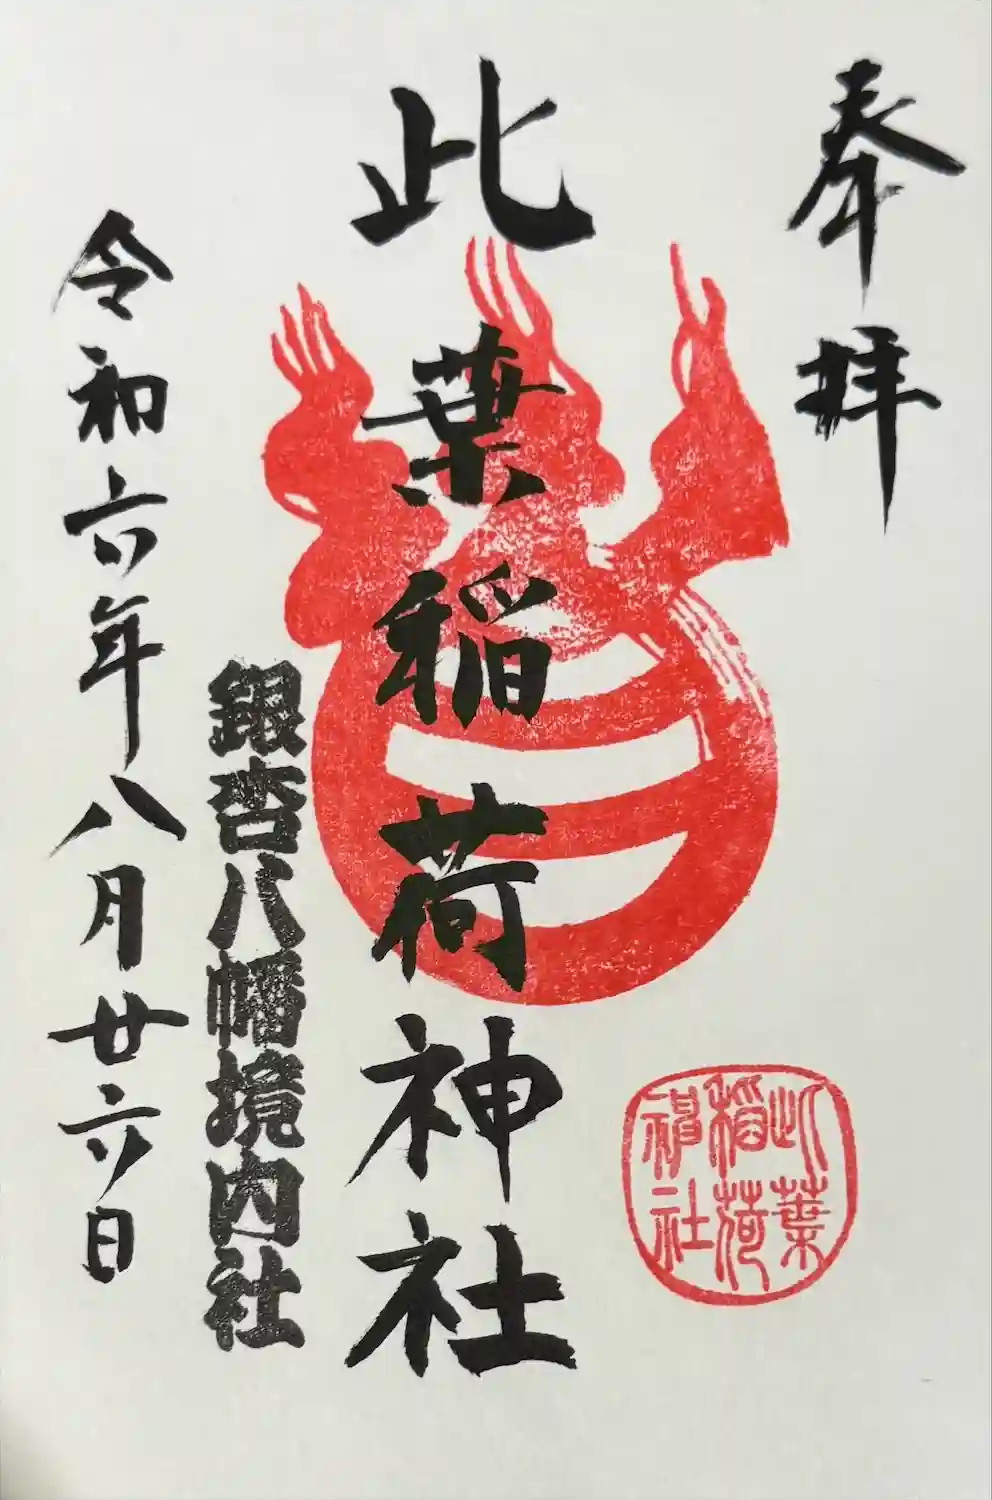 奉拝
此葉稲荷神社
銀杏八幡境内社
令和六年八月廿六日
此葉
稲荷
神社